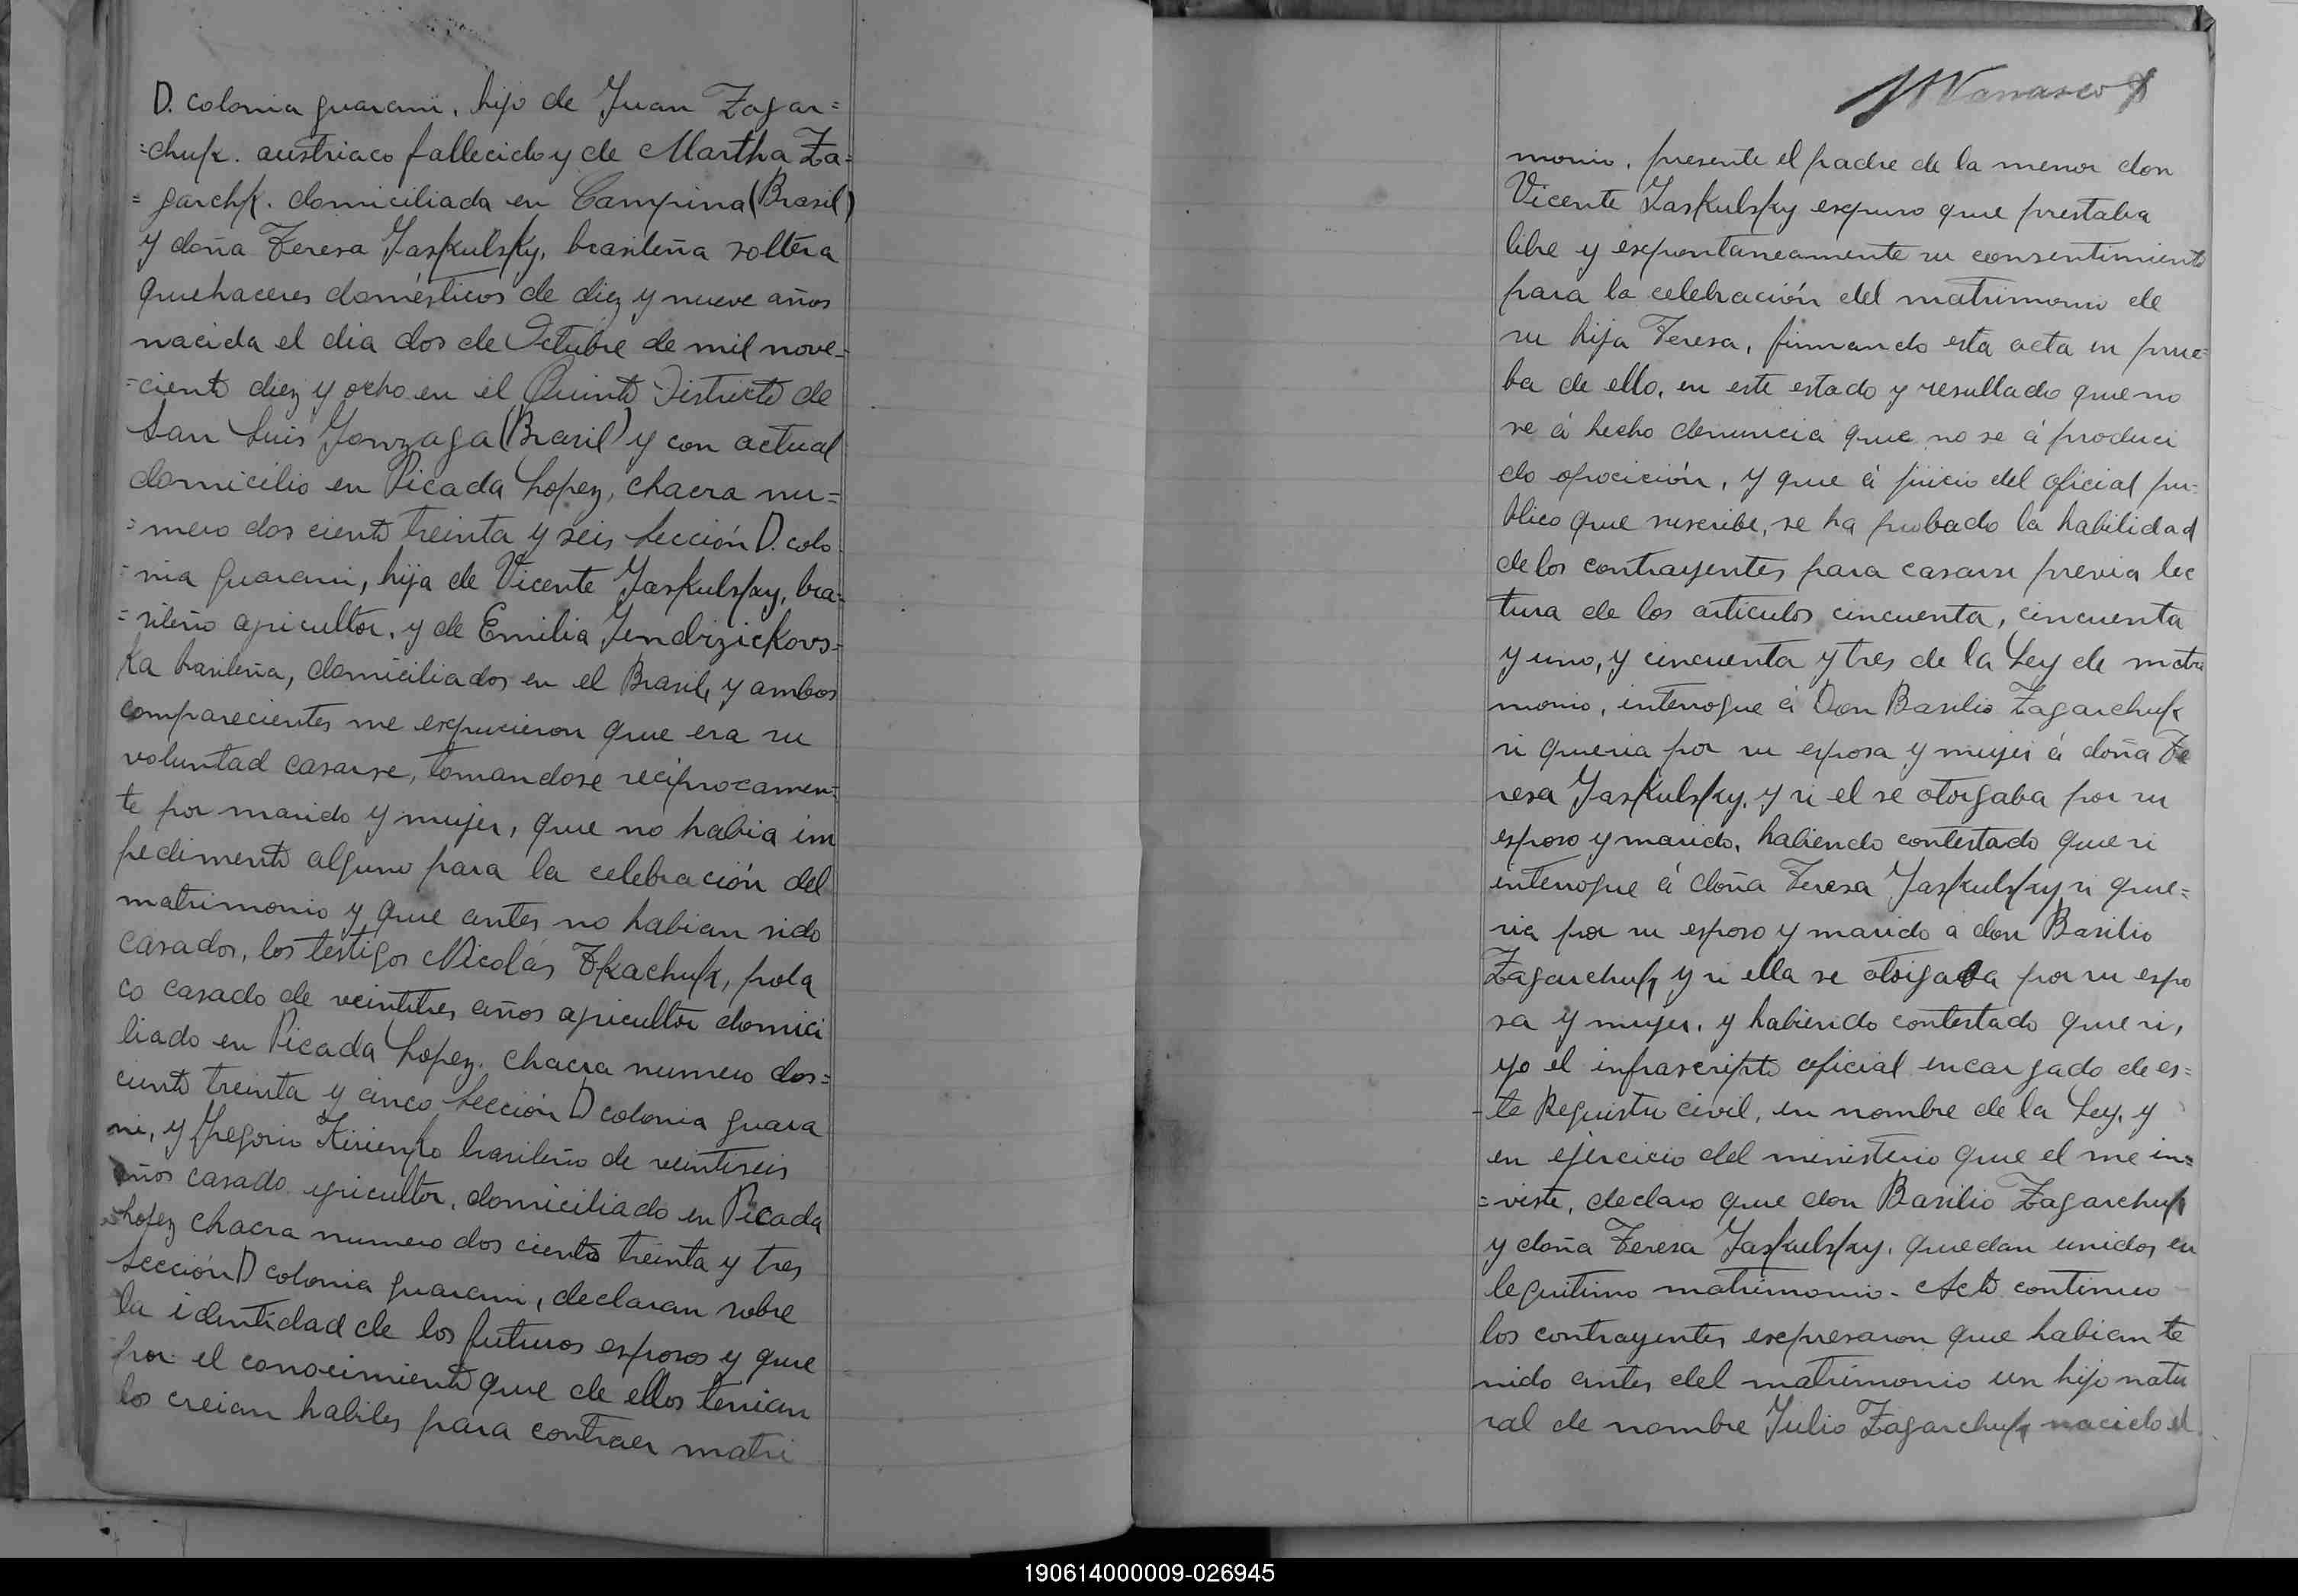 D. colonia guarani, hijo de Juan Zagar=
=chuk. austriaco fallecido y de Martha Za=
=garchk. domiciliada en Campina (Brasil)
y doña Teresa Jaskulsky, brasileña soltera
quehaceres domésticos de diez y nueve años
nacida el dia dos de Octubre de mil nove-
=ciento diez y ocho en el Quinto Districto de
San Luis Gonzaga (Brasil) y con actual
domicilio en Picada Lopez, chacra nu=
=mero dos ciento treinta y seis Sección D. colo
=nia guarani, hija de Vicente Jaskulsky, bra=
=sileño agricultor, y de Emilia Jendrizickovs=
ka brasileña, domiciliados en el Brasil, y ambos
comparecientes me expucieron que era su
voluntad casarse, tomandose reciprocamen=
te por marido y mujer, que no habia im
pedimento alguno para la celebración del
matrimonio y que antes no habian sido
casados, los testigos Nicolás Tkachuk, pola
co casado de veintitres años agricultor domici
liado en Picada Lopez. chacra numero dos=
ciento treinta y cinco Sección D colonia guara
ni, y Gregorio Kirienko brasileño de veintiseis
años casado agricultor, domiciliado en Picada
Lopez chacra numero dos ciento treinta y tres
Sección D colonia guarani, declaran sobre
la identidad de los futuros esposos y que
por el conocimiento que de ellos tenian
los creian habiles para contraer matri
monio, presente el padre de la menor don
Vicente Jaskulsky expuso que prestaba
libre y espontaneamente su consentimiento
para la celebración del matrimonio de
su hija Teresa, firmando esta acta en prue=
ba de ello, en este estado y resultado que no
se á hecho denuncia que no se á produci
do oposición, y que á juicio del oficial pu=
blico que suscribe, se ha probado la habilidad
de los contrayentes para casarse previa lec
tura de los articulos cincuenta, cincuenta
y uno, y cincuenta y tres de la Ley de matri
monio, interrogue á Don Basilio Zagarchuk
si queria por su esposa y mujer á doña Te
resa Jaskulsky, y si el se otorgaba por su
esposo y marido, habiendo contestado que si
interrogue á doña Teresa Jaskulsky si que=
ria por su esposo y marido a don Basilio
Zagarchuk, y si ella se otorgaba por su espo
sa y mujer, y habiendo contestado que si,
yo el infrascripto oficial encargado de es=
-te Reguistro civil, en nombre de la Ley, y
en ejercicio del ministerio que el me in=
=viste, declaro que don Basilio Zagarchuk
y doña Teresa Jaskulsky, quedan unidos en
leguitimo matrimonio- Acto continuo
los contrayentes expresaron que habian te
nido antes del matrimonio un hijo natu
ral de nombre Julio Zagarchuk, nacido el
190614000009-026945